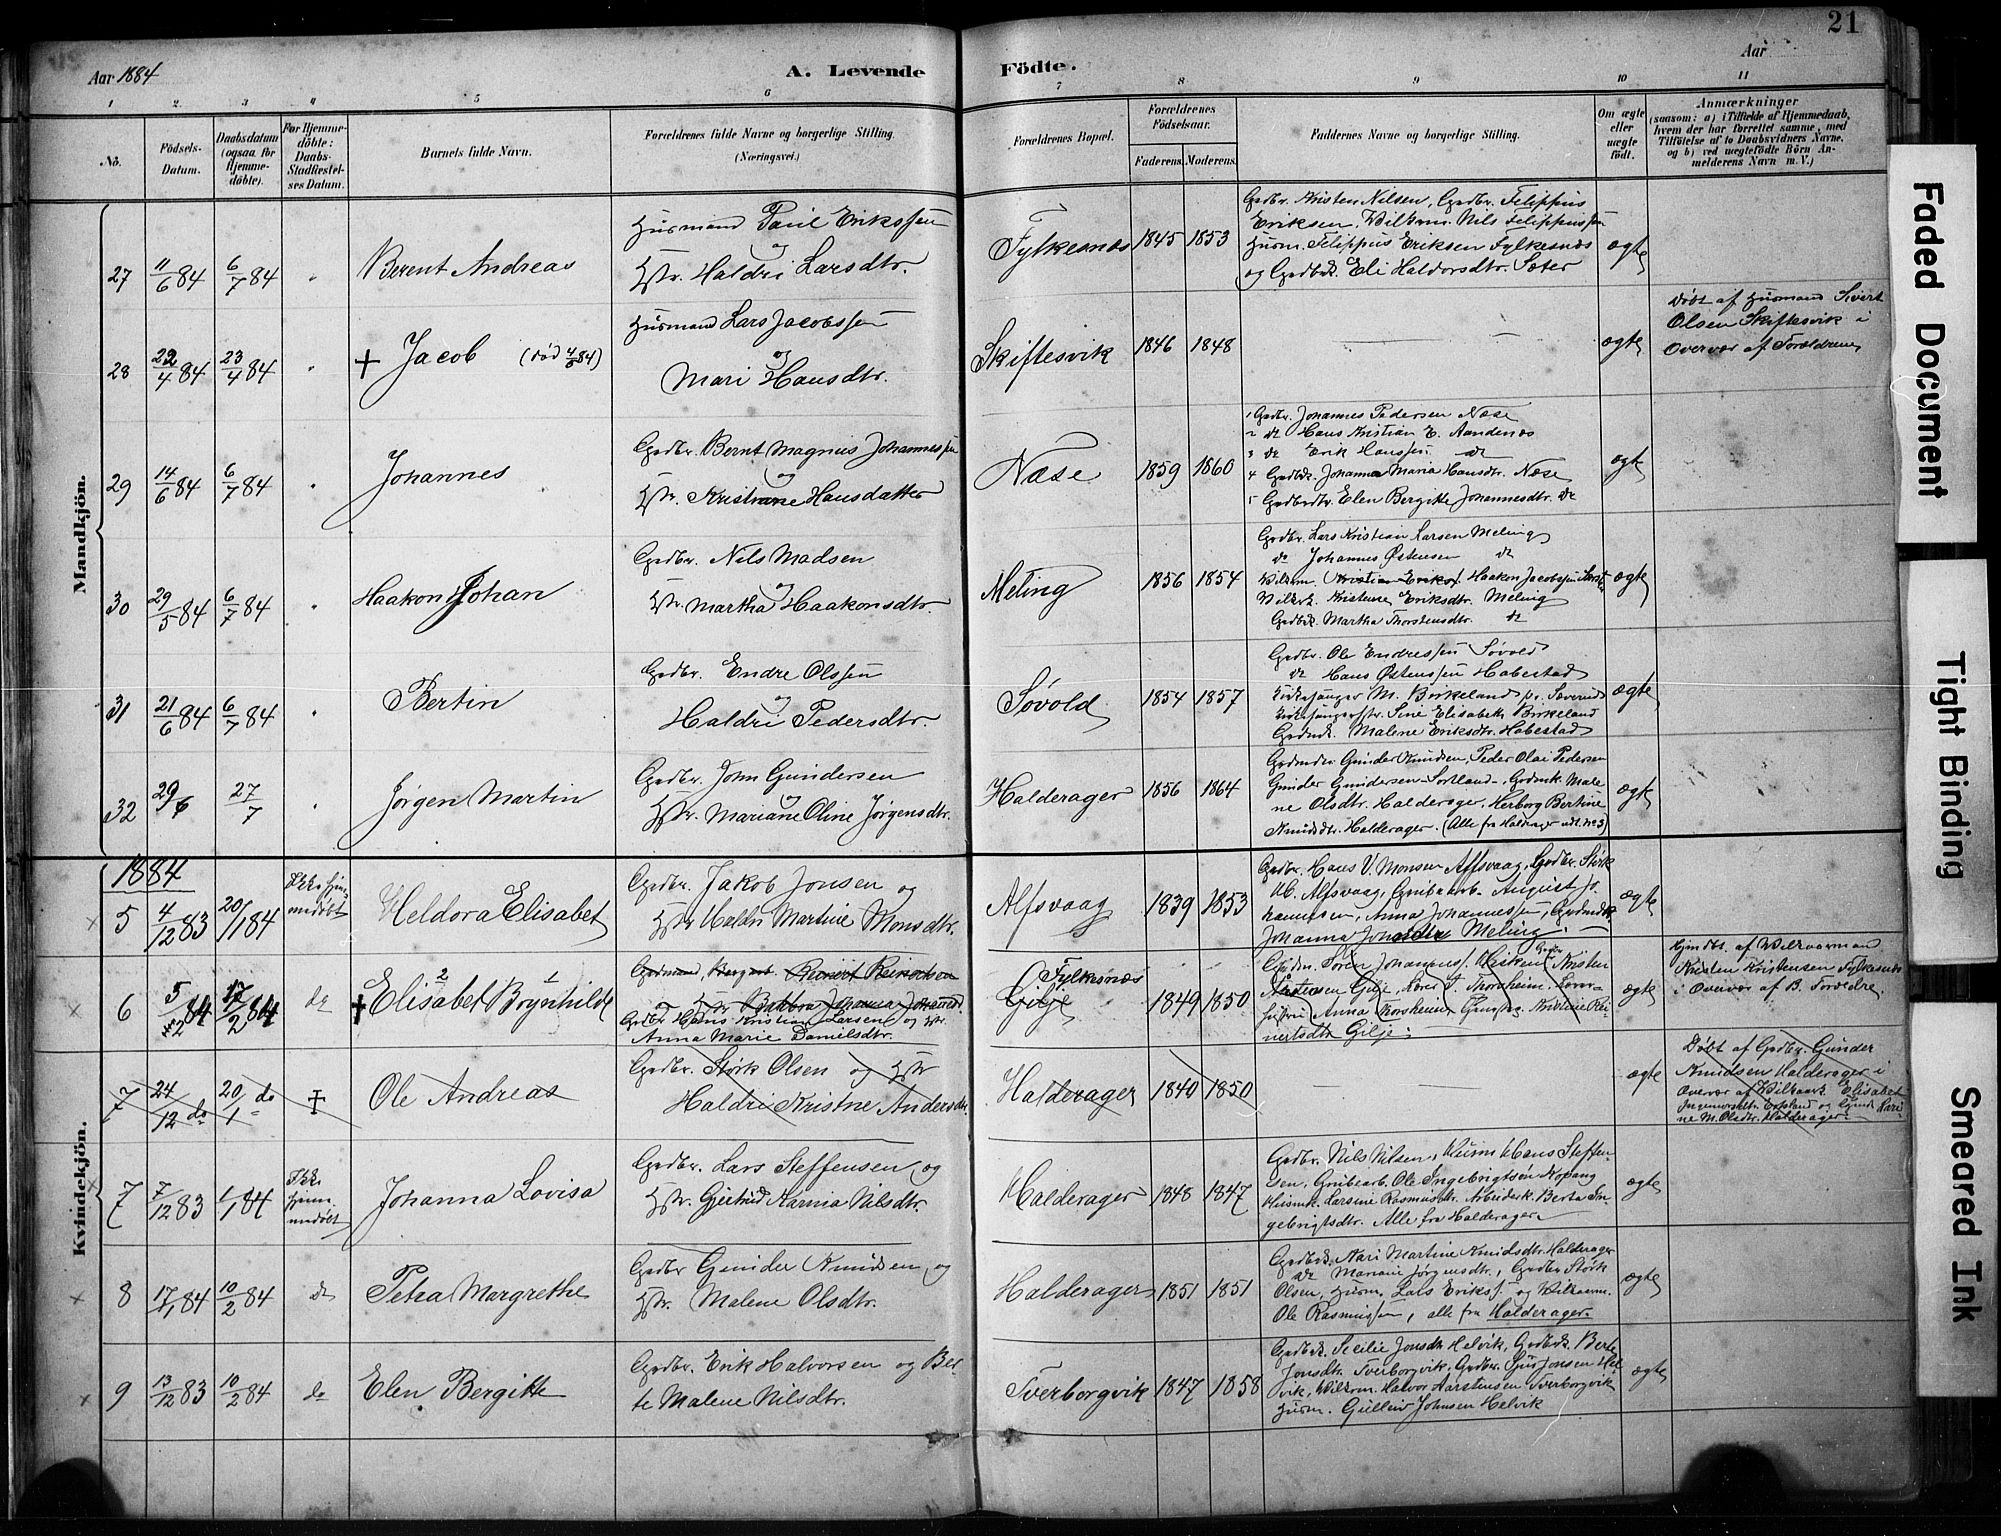 21
Aar 1884
A. Levende
Födte.
Aar
1 2. 3 4 5 6 7 8 9 10 11
No.
Födsels-Datum.
Daabsdatum (ogsaa for Hjemme-döbte).
For Hjemme-döbte: Daabs-Stadfæstel-ses Datum.
Barnets fulde Navn.
Forældrenes fulde Navne og borgerlige Stilling. (Næringsvei.)
Forældrenes Bopæl.
Forældrenes Födselsaar.
Faderens. Moderens.
Faddernes Navne og borgerlige Stilling.
Om ægte eller uægte födt.
Anmærkninger
(saasom: a) i Tilfælde af Hjemmedaab,
hvem der har forrettet samme, med
Tilföielse af to Daabsvidners Navne,
og b) ved uegtefödte Börn An-
melderens Navn m. V.)
Mandkjön.
27 11/6 84 6/7 84 " Berent Andreas
Husmand Paul Erikssen
og
Hstr. Haldri Larsdtr.
Fylkesnæs 1845 1853
Grdbr. Kristen Nilsen, Grdbr. Filippus
Eriksen, Ungkrm. Nils Filippussen
Husm. Filippus Eriksen Fylkesnæs
og Grdbrk. Eli Haldorsdtr. Sæter
ægte
28 22/4 84 23/4 84 " † Jacob (død 4/5 84)
Husmand Lars Jacobssen
og
Mari Hansdtr.
Skiftesvik 1846 1848
—
ægte
Døbt af Husmand Sivert
Olsen Skiftesvik i
Overvær af Forældrene
29 14/6 84 6/7 84 " Johannes
Grdbr. Bernt Magnus Johannessen
og
Hstr. Kristiane Hansdatter
Næse 1859 1860
1 Grdbr. Johannes Pedersen Næse
2 do Hans Kristian E. Aandenæs
3 do Erik Hanssen do
4 Grdbrk. Johanna Maria Hansdtr. Næse
5 Grdbrdtr. Elen Bergitte Johannesdtr. do
ægte
30 29/5 84 6/7 84 " Haakon Johan
Grdbr. Nils Madsen
og
Hstr. Martha Haakonsdtr.
Meling 1856 1854
Grdbr. Lars Kristian Larsen Meling
do Johannes Østensen do
Haakon Jacobsen
Kristine Eriksdtr. Meling
Grdbrk. Martha Thorstensdtr. do
ægte
31 21/6 84 6/7 84 " Bertin
Grdbr. Endre Olssen
og
Haldri Pedersdtr.
Søvold 1854 1857
Grdbr. Ole Endressen Søvold
do Hans Østenssen Habestad
Kirkesanger M. Birkeland
Sine Elisabeth Birkeland
Malene Eriksdtr. Habestad
ægte
32 29/6 27/7 " Jørgen Martin
Grdbr. John Gundersen
og
Hstr. Mariane Oline Jørgensdtr.
Halderager 1856 1864
Gunder Knudsen, Peder Olai Pedersen
Gunder Gundersen Sortland, Grdmk. Male-
ne Olsdtr. Halderager, Herborg Bertine
Knudsdtr. Halderager. (Alle fra Halderager)
ægte
Kvindekjön.
1884
5 4/12 83 20/1 84 Ikke hjem-medøbt Heldora Elisabet
Grdbr. Jakob Jonsen og
Hstr Haldri Martine Monsdtr.
Alfsvaag 1839 1853
Grdbr. Hans V. Monsen Alfsvaag, Grdbr. Størk
M. Alfsvaag, Grubearb. August Jo-
hannesen, Anna Johannessen, Grdmdk.
Johanna Meling.
ægte
6 5/2 84 17/2 84 do † Elisabet Brynhilde
2 1
Grdbr Hans Kristian Larsen og Hstr.
Anna Marie Danielsdtr.
Fylkesnæs
Gilje
1849 1850
Gilje, Thorsheim
Anna Thorsheim
Gilje.
ægte
Hjmdbt. af
Kristen Kristensen Fylkesnæs
i Overvær af B. Forældre.
7 24/12 do 20/1 do ‡ Ole Andreas
Grdbr. Størk Olsen og Hstr
Haldri Kristne Andersdtr.
Halderager 1840 1850
—
ægte
Døbt af Grdbr. Gunder
Knudsen Halderager i
Overvær af Elisabet
ne M. Olsdtr. Halderager.
7 7/12 83 1/1 84 Ikke hjem-medøbt Johanna Lovisa
Grdbr. Lars Steffensen og
Hstr. Gjertrud Karina Nilsdtr.
Halderager 1848 1847
Grdbr. Nils Nilsen, Husm Hans Steffen-
sen, Grubearb. Ole Ingebrigtsen Kopang
Husmk. Larsine Rasmusdtr. Arbeiderk. Berta In-
gebrigtsdtr. Alle fra Halderager
ægte
8 17/1 84 10/2 84 do Petra Margrethe
Grdbr Gunder Knudsen og
Hstr. Malene Olsdtr.
Halderager 1851 1851
Grdbrk. Kari Martine Knudsdtr. Halderager
do Mariane Jørgensdtr., Grdbr. Størk
Olsen, Husm. Lars Erikss. og Ungkarm.
Ole Rasmussen, alle fra Halderager.
ægte
9 13/12 83 10/2 84 do Elen Bergitte
Grdbr. Erik Halvorsen og Ber-
te Malene Nilsdtr.
Tverborgvik 1847 1858
Grdbrk. Sicilie Jonsdtr Helvik, Grdbrk. Berte
Jonsdtr. Tverborgvik, Grdbr. Sjur Jonsen Hel-
vik, Halvor Karstensen Tverborgvik
Husm. Gulleiv Johnsen Helvik
ægte
Faded Document
Tight Binding
Smeared Ink